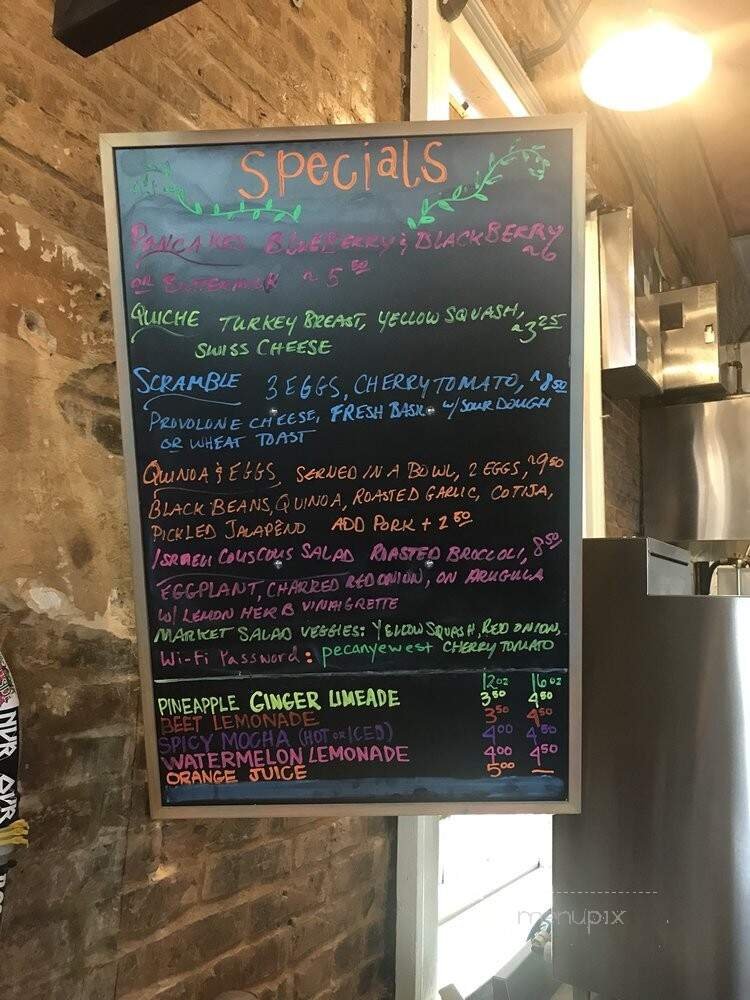 Specials
PANCAKES BLUEBERRY & BLACKBERRY
~6
OR BUTTERMILK ~ 5 50
QUICHE TURKEY BREAST, YELLOW SQUASH,
~3 25
SWISS CHEESE
SCRAMBLE 3 EGGS, CHERRY TOMATO, ~8 50
PROVOLONE CHEESE, FRESH BASIL w/ SOUR DOUGH
OR WHEAT TOAST
QUINOA & EGGS, SERVED IN A BOWL, 2 EGGS, ~9 50
BLACK BEANS, QUINOA, ROASTED GARLIC, COTIJA,
PICKLED JALAPEÑO ADD PORK + 2 50
ISRAELI COUSCOUS SALAD ROASTED BROCCOLI, 8 50
EGGPLANT, CHARRED RED ONION, ON ARUGULA
W/ LEMON HERB VINAIGRETTE
MARKET SALAD VEGGIES: YELLOW SQUASH, RED ONION,
Wi-Fi Password: pecanyewest CHERRY TOMATO
12 oz 16 oz
PINEAPPLE GINGER LIMEADE 3 50 4 50
BEET LEMONADE 3 50 4 50
SPICY MOCHA (HOT OR ICED) 4 00 4 50
WATERMELON LEMONADE 4 00 4 50
ORANGE JUICE 5 00 —
menupix